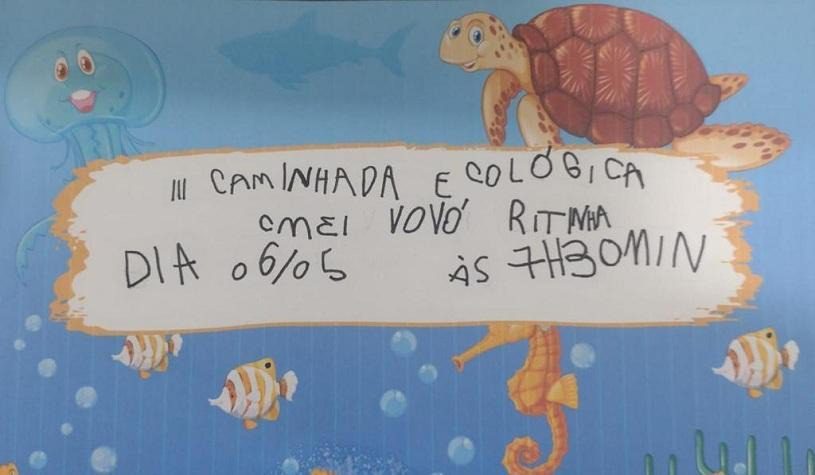 III CAMINHADA ECOLÓGICA
CMEI VOVÓ RITINHA
DIA 06/05 ÀS 7H30MIN